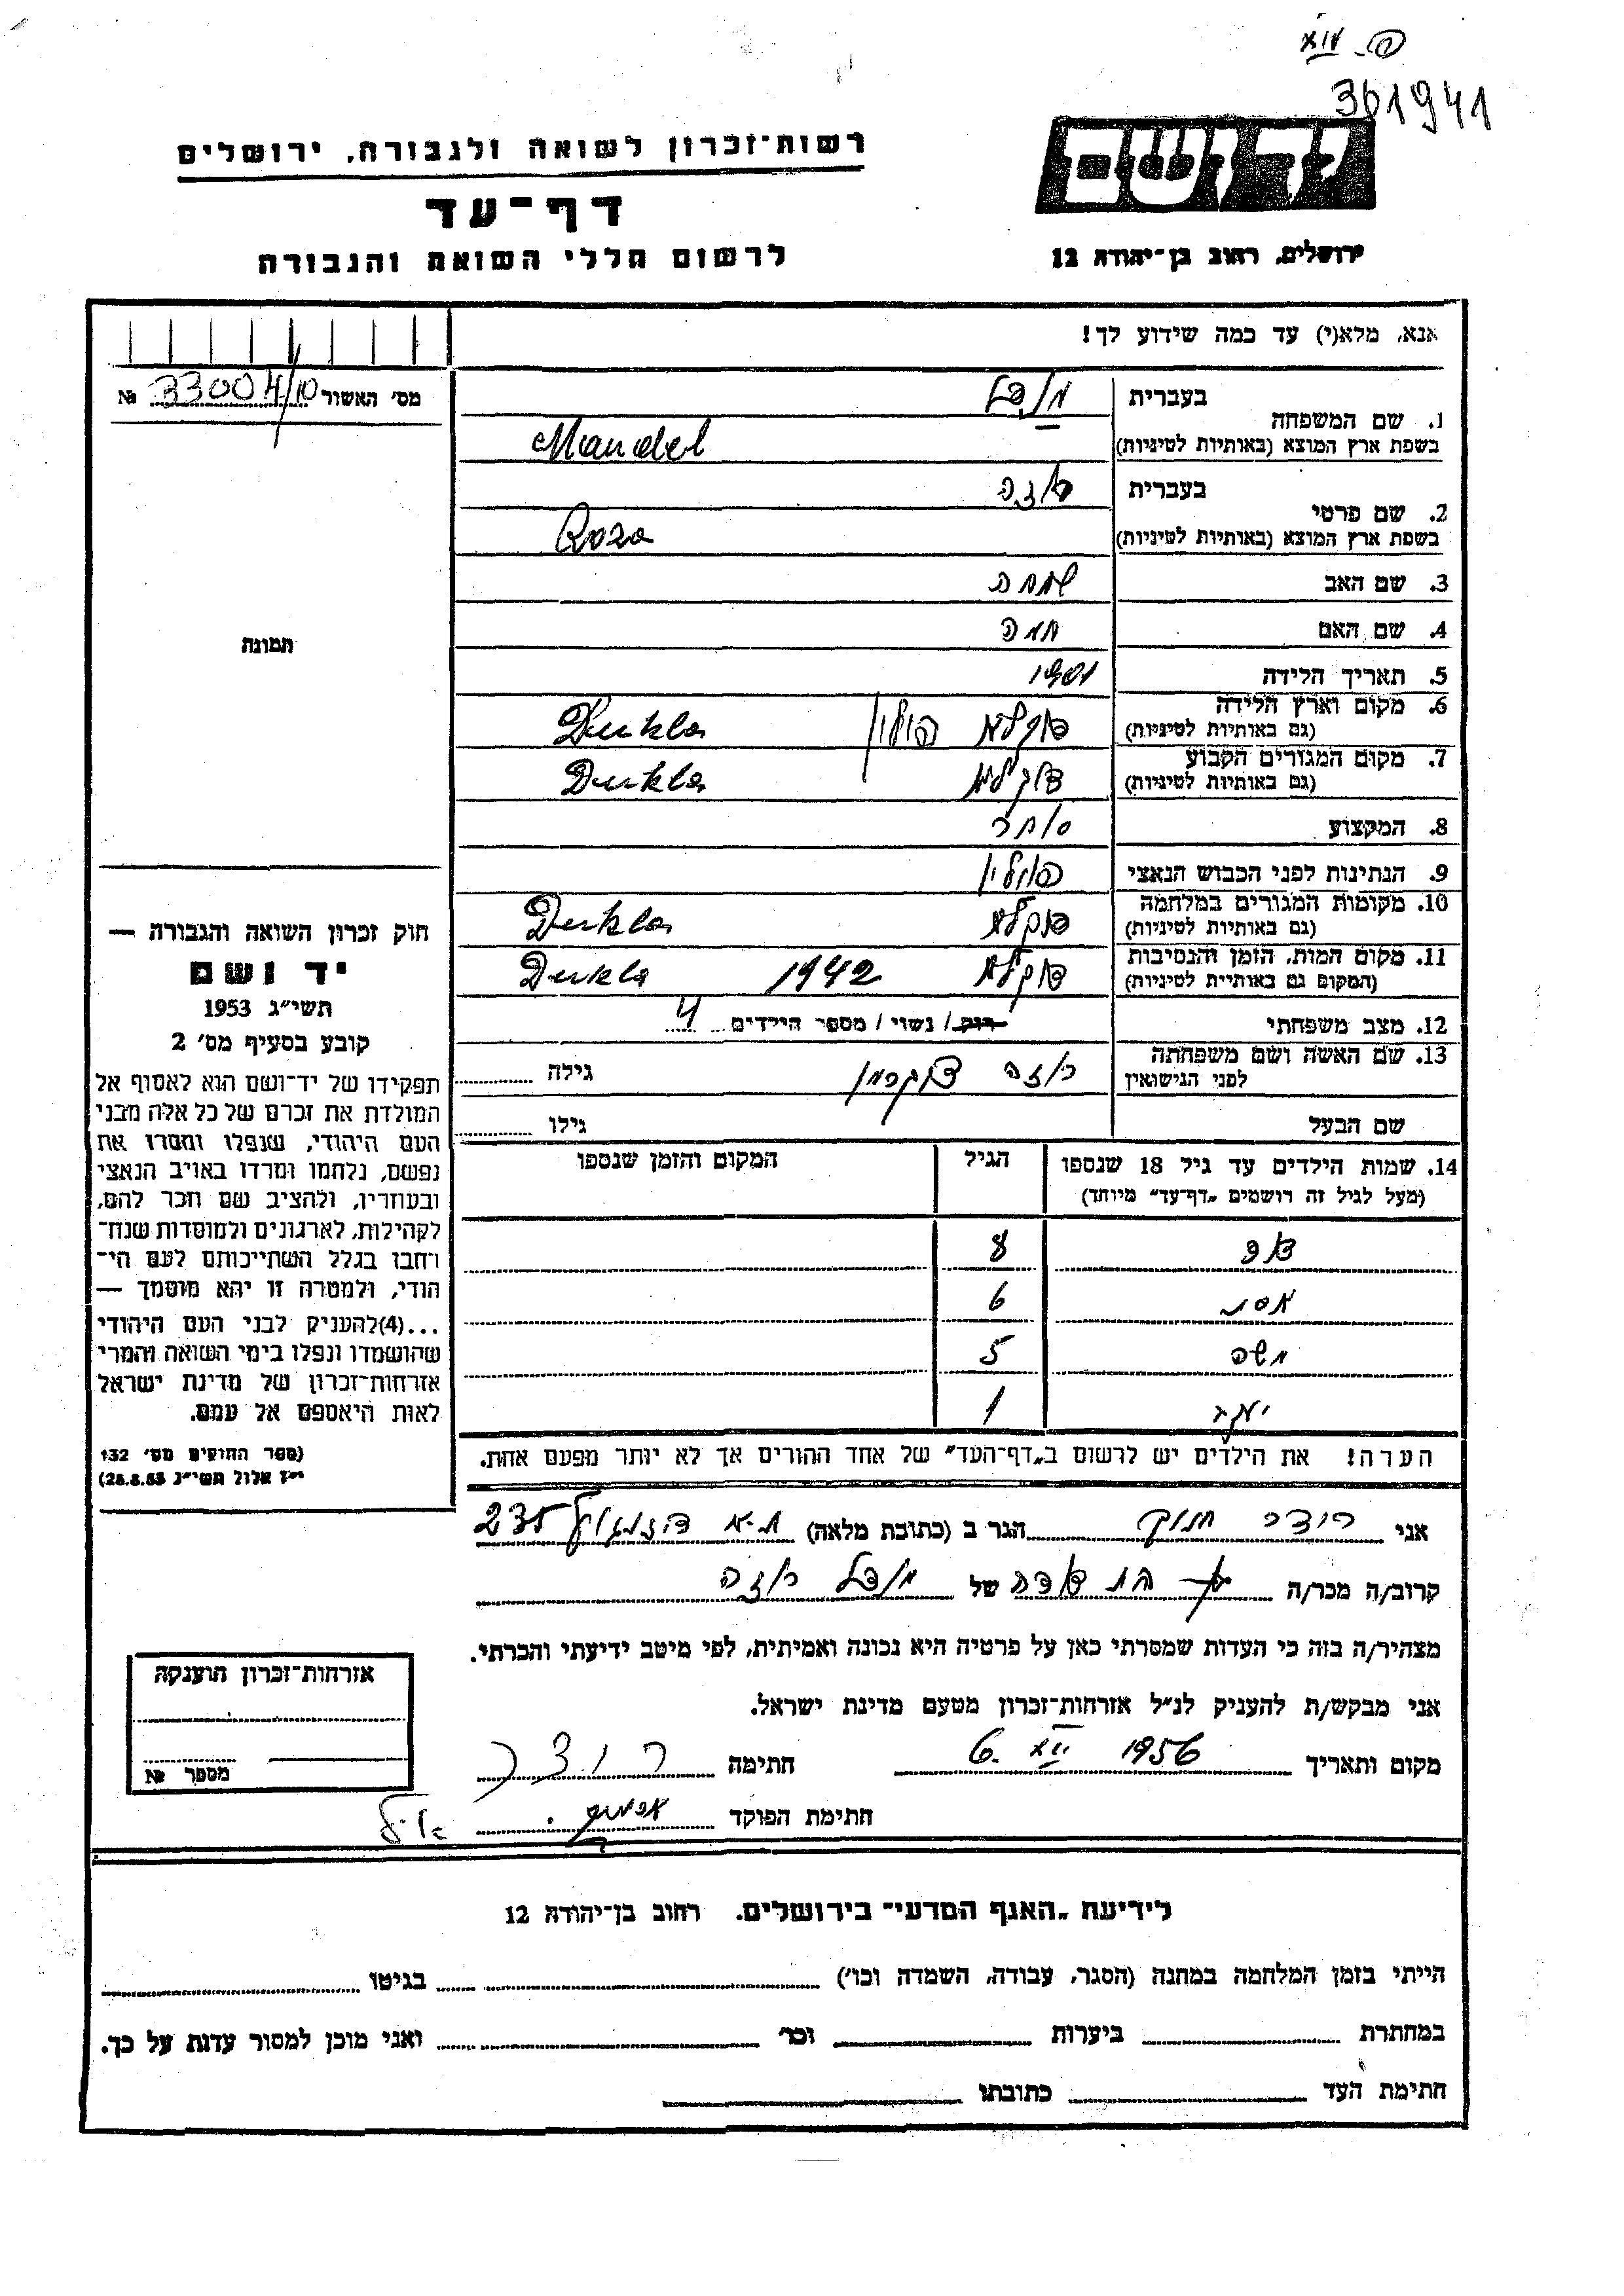 פ- XII
361941
רשות־זכרון לשואה ולגבורה, ירושלים
יד ושם
דף־עד
לרשום חללי השואה והגבורה
ירושלים, רחוב בן־יהודה 12
אנא, מלא(י) עד כמה שידוע לך!
מס׳ האשור № 33004/10
תמונה
1. שם המשפחה בעברית מנדל
בשפת ארץ המוצא (באותיות לטיניות) Mandel
2. שם פרטי בעברית רוזה
בשפת ארץ המוצא (באותיות לטיניות) Roza
3. שם האב שמחה
4. שם האם חנה
5. תאריך הלידה 1901
6. מקום וארץ הלידה (גם באותיות לטיניות) דוקלא פולין Dukla
7. מקום המגורים הקבוע (גם באותיות לטיניות) דוקלא Dukla
8. המקצוע סוחר
9. הנתינות לפני הכבוש הנאצי פולין
10. מקומות המגורים במלחמה (גם באותיות לטיניות) דוקלא Dukla
11. מקום המות, הזמן והנסיבות (המקום גם באותיית לטיניות) דוקלא 1942 Dukla
12. מצב משפחתי רוק / נשוי / מספר הילדים 4
13. שם האשה ושם משפחתה לפני הנישואין רוזה גילה
שם הבעל גילו
14. שמות הילדים עד גיל 18 שנספו הגיל המקום והזמן שנספו
(מעל לגיל זה רושמים „דף־עד״ מיוחד)
דוד 8
אסתר 6
משה 5
יעקב 1
הערה! את הילדים יש לרשום ב„דף־העד״ של אחד ההורים אך לא יותר מפעם אחת.
חוק זכרון השואה והגבורה —
יד ושם
תשי״ג 1953
קובע בסעיף מס׳ 2
תפקידו של יד־ושם הוא לאסוף אל
המולדת את זכרם של כל אלה מבני
העם היהודי, שנפלו ומסרו את
נפשם, נלחמו ומרדו באויב הנאצי
ובעוזריו, ולהציב שם וזכר להם,
לקהילות, לארגונים ולמוסדות שנח־
רחבו בגלל השתייכותם לעם הי־
הודי, ולמטרה זו יהא מוסמך —
...(4)להעניק לבני העם היהודי
שהושמדו ונפלו בימי השואה והמרי
אזרחות־זכרון של מדינת ישראל
לאות היאספם אל עמם.
(ספר החוקים מס׳ 132
י״ז אלול תשי״ג 28.8.53)
אני רוצר חנוך הגר ב (כתובת מלאה) ת-א דיזנגוף 235
קרוב/ה מכר/ה בת דודה של מנדל רוזה
מצהיר/ה בזה כי העדות שמסרתי כאן על פרטיה היא נכונה ואמיתית, לפי מיטב ידיעתי והכרתי.
אני מבקש/ת להעניק לנ״ל אזרחות־זכרון מטעם מדינת ישראל.
מקום ותאריך 6. XII 1956 חתימה רוצר
חתימת הפוקד
אזרחות־זכרון הוענקה
מספר №
לידיעת „האגף המדעי״ בירושלים, רחוב בן־יהודה 12
הייתי בזמן המלחמה במחנה (הסגר, עבודה, השמדה וכו׳) בגיטו
במחתרת ביערות וכו׳ ואני מוכן למסור עדות על כך.
חתימת העד כתובתו